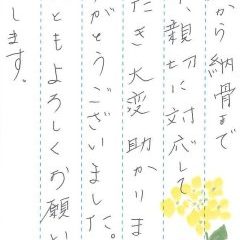 から納骨まで
、親切に対応して
だき大変助かりま
がとうございました。
ともよろしくお願い
します。